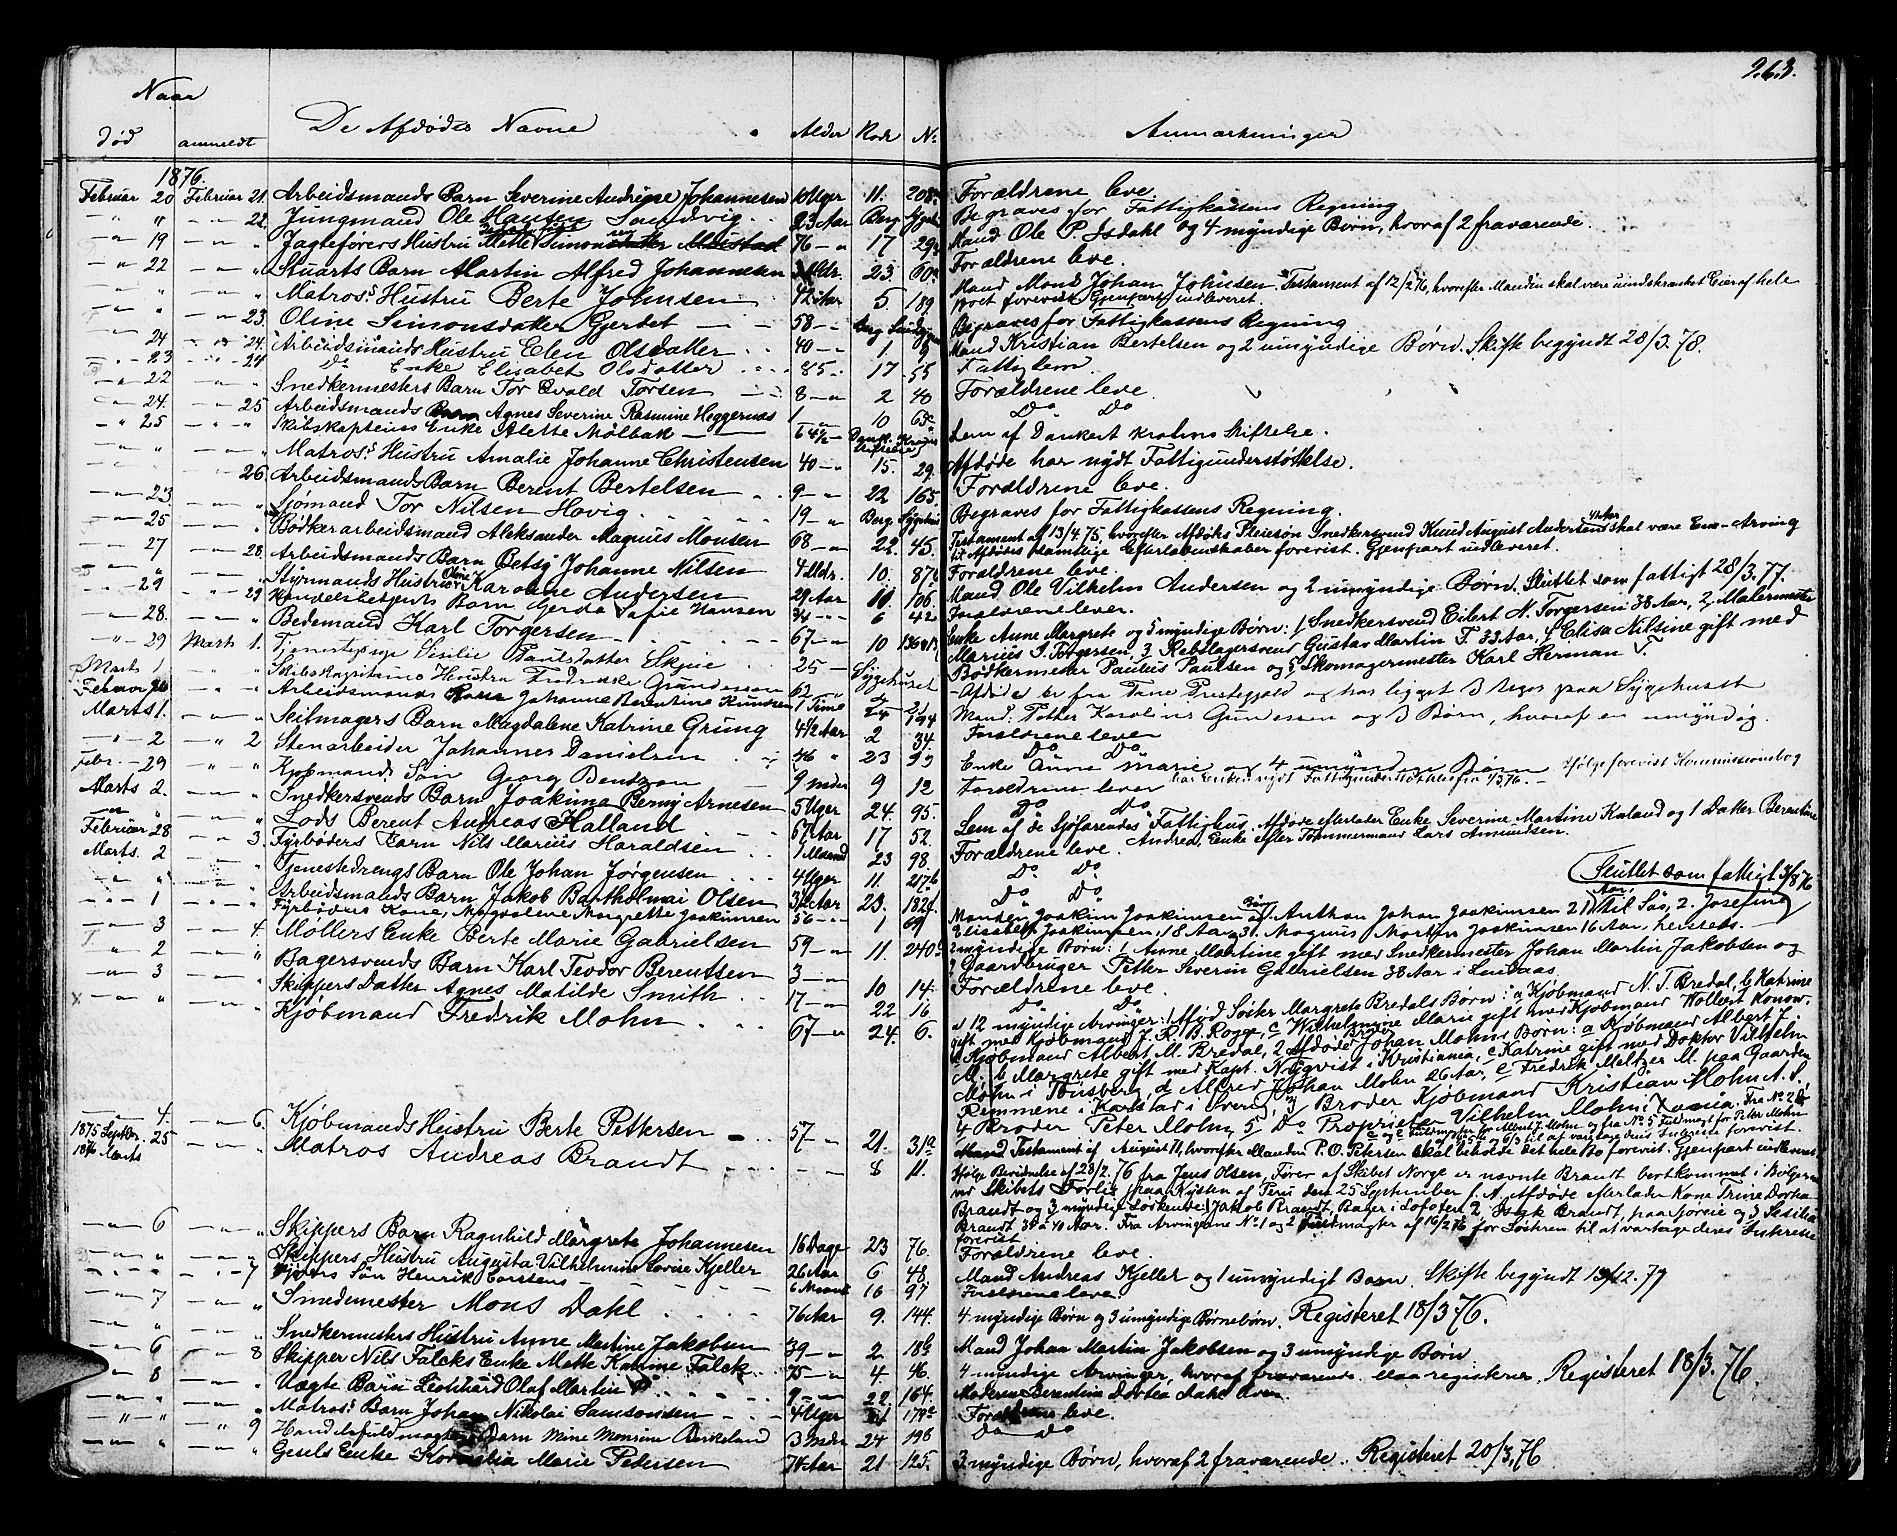 263.
Naar
Død anmeldt De Afdødes Navne Alder Rode No Anmærkninger
1876.
Februar 20 Februar 21. Arbeidsmands Barn Severine Andrine Johannesen 10 Uger 11. 208 Forældrene leve
" " 22. Jungmand Ole Hansen Sandvig 23 Aar Berg. Sygeh. Begraves for Fattigkassens Regning
" 19 " " Jagteførers Hustru Mette Simonsdatter 76 " 17 29 Mand Ole P. Isdahl og 4 myndige Børn, hvoraf 2 fraværende.
" 22 " " Stuarts Barn Martin Alfred Johannesen Mdr. 23. 60 Forældrene leve.
" " " Matros's Hustru Berte Johnsen 42 Aar 5. 189. Mand Mons Johan Johnsen. Testament af 12/2 76, hvorefter Manden skal være uindskrænket Eier af hele
Boet forevist. Gjenpart indleveret.
" " 23. Oline Simonsdatter Gjerdet 58 " Berg. Begraves for Fattigkassens Regning
24 " 24. Arbeidsmands Hustru Elen Olsdatter 40 " 1. 9 Mand Kristian Bertelsen og 2 umyndige Børn. Skifte begyndt 28/3.78.
" 23 " 24 Do Enke Elisabet Olsdatter 85 " 17 55 Fattiglem
" 22 " " Snedkermesters Barn Tor Evald Torsen 8 " 2 40 Forældrene leve
" 24. " 25 Arbeidsmands Barn Agnes Severine Rasmine Heggernæs 1 " 10 65 Do Do
" 25 " " Skibskapteins Enke Alette Mølbak 64½ " Dank. Krahns Stiftelse Lem af Dankert Krahns Stiftelse.
" " " Matros's Hustru Amalie Johanne Christensen 40 " 15. 29. Afdøde har nydt Fattigunderstøttelse.
" " 26. Arbeidsmands Barn Berent Bertelsen 9 " 22 165. Forældrene leve.
" 23. " " Sjømand Tor Nilsen Hovig 19 " Berg. Sygehus Begraves for Fattigkassens Regning.
" 25 " " Bødkerarbeidsmand Aleksander Magnus Monsen 68 " 22. 45. Testament af 13/4.75, hvorefter Afdødes Pleiesøn Snedkersvend Knud August Andersen 41 Aar skal være Ene-Arving
til Afdødes samtlige Efterladenskaber forevist. Gjenpart indleveret.
" 27 " 28. Arbeidsmands Barn Betsy Johanne Nilsen 4 Mdr. 10. 87 Forældrene leve.
" " " Styrmands Hustru Oline Karoline Andersen 29 Aar 10 106. Mand Ole Vilhelm Andersen og 2 umyndige Børn. Sluttet som fattigt 28/3.77.
" 29 " 29 Handelsbetjents Barn Gerda Sofie Hansen 3/4 " 6 42 Forældrene lever.
" 28. " " Bedemand Karl Torgersen 67 " 10 136 Enke Anne Margrete og 5 myndige Børn: 1 Snedkersvend Eilert N. Torgersen 38 Aar, 2, Malermester
Marius I. Torgersen, 3 Rebslagersvend Gustav Martin T. 33 Aar, 4 Elisa Nilsine gift med
Bødkermester Paulus Paulsen og 5 Skomagermester Karl Herman T.
" 29 Marts 1. Tjenestepige Sesilie Paulsdatter Skjeie 25 " Sygehuset Afdøde er fra Præstegjeld og har ligget 3 Uger paa Sygehuset
Marts 1 " " Skibskapitains Hustru Fredrikke Gundersen 62 " Mand: Petter Karolius Gundersen og 3 Børn, hvoraf en umyndig.
Februar " " Arbeidsmands Barn Johanne Berentine Knudsen 1 Time 24 194 Forældrene lever
Marts 1. " " Seilmagers Barn Magdalene Katrine Grung 4½ Aar 2 34. Do Do
" 2 " 2 Stenarbeider Johannes Danielsen 46 " 23 99 Enke Anne Marie og 4 umyndige Børn Ifølge forevist Kommissionsbog
har Enken nydt Fattigunderstøttelse 1/3 76.
Febr. 29 " " Kjøbmands Søn Georg Bentzon 9 Mdr 9 12 Forældrene lever
Marts 2. " " Snedkersvends Barn Joakima Berny Arnesen 5 Uger 24. 95. Do Do
" " " Lods Berent Andreas Halland 67 Aar 17 52. Lem af de Sjøfarendes Fattighus. Afdøde efterlader Enke Severine Martine Kaland og 1 Datter Berentine
Andrea, Enke efter Tømmermand Lars Amundsen.
Februar 28 " 3. Fyrbøders Barn Nils Marius Haraldsen 1 Maaned 23 98. Forældrene leve.
Marts. 2 " " Tjenestedrengs Barn Ole Johan Jørgensen 4 Uger 11. 217 Do Do
Sluttet som fattigt 3/8 76
" " " Arbeidsmands Barn Jakob Bartholmai Olsen 3/4 Aar 23. 182 Do Do
" 1 " " Fyrbøders Kone, Magdalene Margrette Joakimsen 56 " 1 69 Manden Joakim Joakimsen og Børn 1. Anthon Johan Joakimsen 21 Aar, til Søs, 2. Josefine
Elisabeth Joakimsen, 18 Aar 3. Magnus Martin Joakimsen 16 Aar, herstets.
" 3 " 4 Møllers Enke Berte Marie Gabrielsen 59 " 11. 240 2 myndige Børn: 1 Anne Martine gift med Snedkermester Johan Martin Jakobsen og
2 Gaardbruger Petter Severin Gabrielsen 38 Aar i Lindaas.
" 2 " " Bagersvends Barn Karl Teodor Berentsen 3 " 10 14. Forældrene leve.
" 3 " " Skippers Datter Agnes Matilde Smith 17 " 22 16 Do Do
" " " Kjøbmand Fredrik Mohn 67 " 24. 6. 12 myndige Arvinger: 1 Afdød Søster Margrete Bredals Børn: a Kjøbmand N. T. Bredal, b Katrine
gift med Kjøbmand J. R. B. Rogge, c Wilhelmine Marie gift med Kjøbmand Wollert Konow,
d Kjøbmand Albert M. Bredal, 2 Afdøde Broder Johan Mohns Børn: a Kjøbmand Albert J.
M., b Margrete gift med Kapt. Nyqvist i Kristiania, c Katrine gift med Doktor Vilhelm
Mohn i Tønsberg, d Alfred Johan Mohn 26 Aar, e Fredrik Meltzer M. paa Gaarden
Remmene i Karlstad i Sverig, 3 Broder Kjøbmand Kristian Mohn A. S.
4 Broder Peter Mohn, 5 Do Proprietær Vilhelm Mohn. Fra No 2
c og e Fuldmagter for Albert J. Mohn og fra No 5 Fuldmagt for Peter Mohn
til at varetage deres Interesse forevist.
" 4. " 6. Kjøbmands Hustru Berte Pettersen 57 " 21. 31 Mand Testament af August 71, hvorefter Manden P. O. Petersen skal beholde det hele Bo forevist. Gjenpart indleveret
1875 Septbr. 25 " " Matros Andreas Brandt " 8 11. Ifølge Bevidnelse af 28/2. 76 fra Jens Olsen, Fører af Skibet Norge er nævnte Brandt bortkommet i Bølgerne
1876 Marts
ved Skibets Forlis paa Kysten af Peru den 25 September f. A. Afdøde efterlader Kone Trine Dortea
Brandt og 3 myndige Søskende: 1 Jakob Brandt, Bager i Lofoten 2, Isak Brandt, paa Jøreie og 3 Sesilia
Brandt 38 a 40 Aar. Fra Arvingerne No 1 og 2 Fuldmagter af 16/2 76 for Søstren til at varetage deres Interesse
forevist.
" 6 " " Skippers Barn Ragnhild Margrete Johannesen 16 Dage 23 76. Forældrene leve.
" " " Skippers Hustru Augusta Vilhelmine Lovise Kjeller 26 Aar 6 48 Mand Andreas Kjeller og 1 umyndigt Barn. Skifte begyndt 13/12.77
" " 7 Søn Henrik Carstens 6 Maand 16 97 Forældrene leve.
" 7 " " Smedemester Mons Dahl 76 Aar 9. 144. 4 myndige Børn og 3 umyndige Børnebørn. Registeret 18/3 76.
" " " Snedkermesters Hustru Anne Martine Jakobsen 39 " 2 18 Mand Johan Martin Jakobsen og 3 umyndige Børn
" 6 " 8 Skipper Nils Falcks Enke Mette Katrine Falck 75 " 4 46. 4 myndige Arvinger, hvoraf fraværende. Maa registreres. Registeret 18/3.76.
" 8 " " Uægte Barn Leonhard Olaf Martin 9 " 22. 164. Moderen Berentine Dortea
" " " Matros's Barn Johan Nikolai Samsonsen 4 Uger 179 Forældrene leve.
" " " 9 Handelsfuldmægtigs Barn Mine Monsine Birkeland 3 Mdr 24 196 Do Do
" " " Gesels Enke Kornelia Marie Pedersen 71 Aar 21 125. 3 myndige Børn, hvoraf 2 fraværende. Registeret 20/3.76